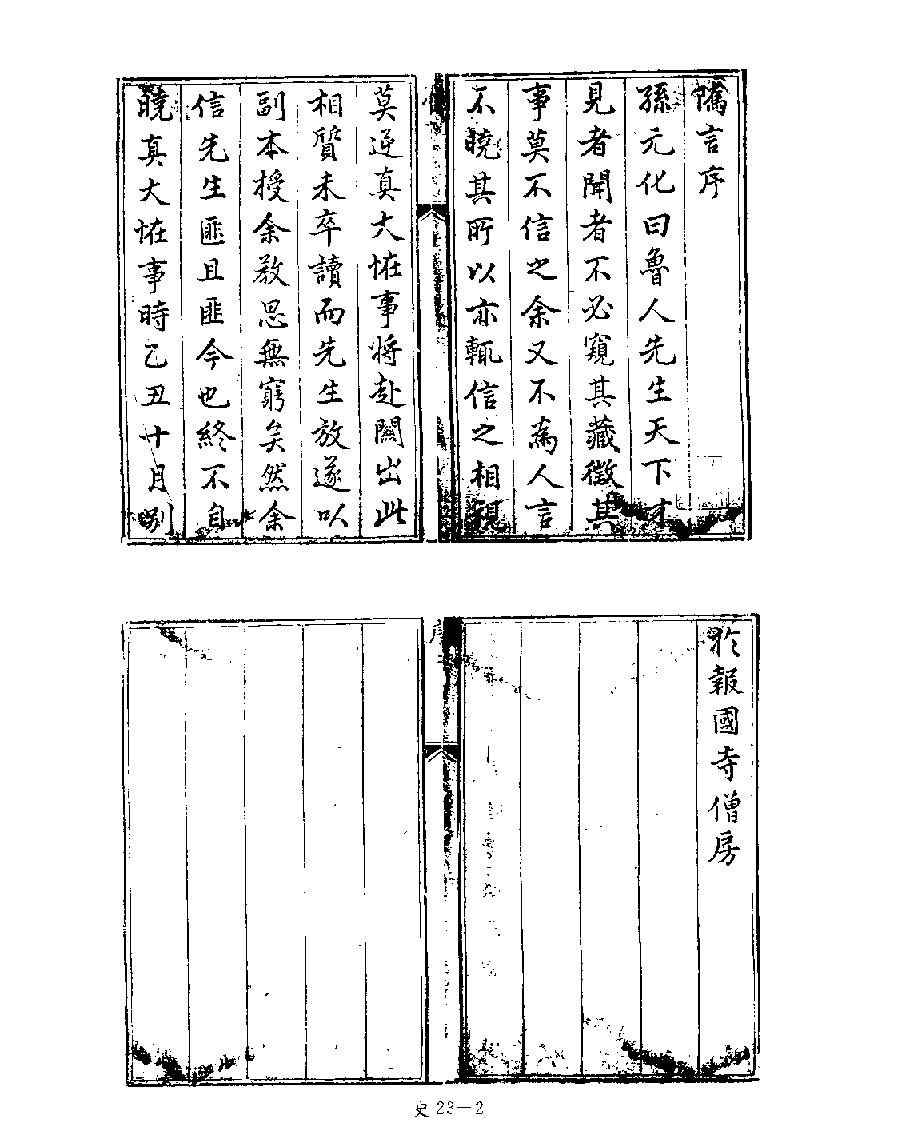 言序
孫元化曰魯人先生天下才
見者聞者不必窺其藏徵其
事莫不信之余又不為人言
不曉其所以亦輒信之相視
莫逆真大怪事將赴闕出此
相質未卒讀而先生放遂以
副本授余教思無窮矣然余
信先生匪且匪今也終不自
曉真大怪事時乙丑十月別
於報國寺僧房
序
史 23—2